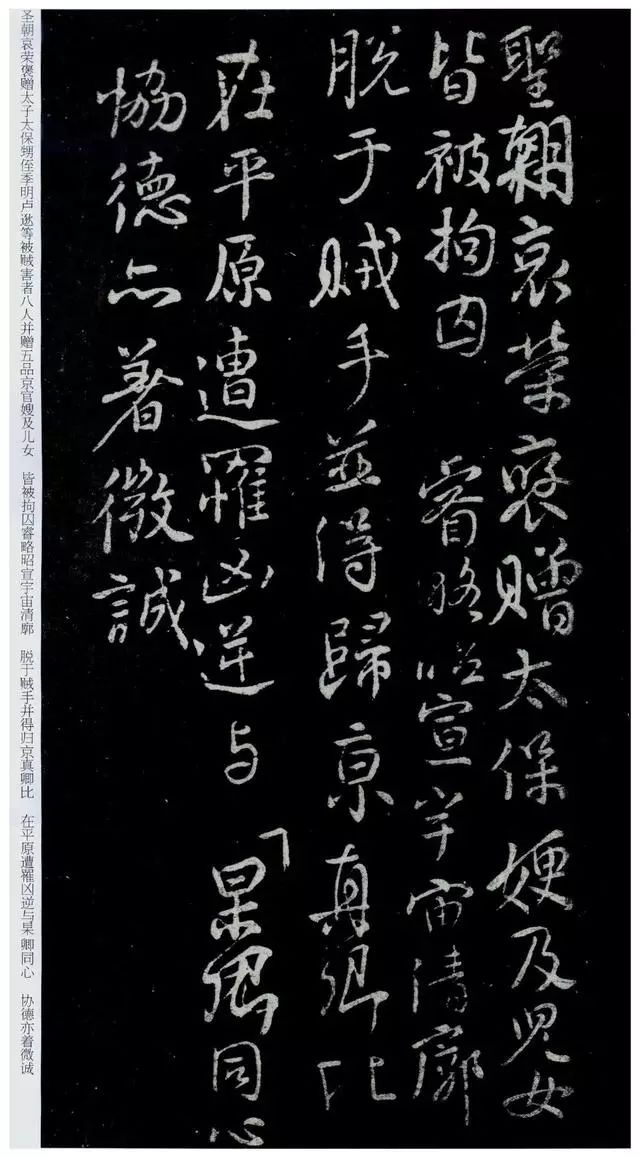 聖朝哀榮褒贈太保嫂及兒女
皆被拘囚 睿略昭宣宇宙清廓
脫于賊手並得歸京真卿比
在平原遭罹凶逆与杲卿同心
恊德亦著微誠
圣朝哀荣褒赠太子太保甥侄季明卢逖等被贼害者八人并赠五品京官嫂及儿女 皆被拘囚睿略昭宣宇宙清廓 脱于贼手并得归京真卿比 在平原遭罹凶逆与杲卿同心 协德亦着微诚